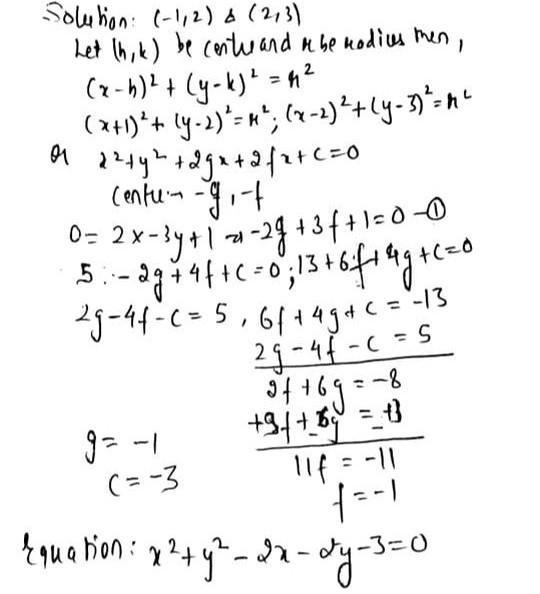 Solution: (-1,2) & (2,3)
Let (h,k) be centre and r be radius then,
(x-h)² + (y-k)² = r²
(x+1)² + (y-2)² = r²; (x-2)² + (y-3)² = r²
Or x²+y²+2gx+2fx+c=0
Centre → -g, -f
0= 2x-3y+1 ⇒ -2g+3f+1=0 -①
5 :- 2g+4f+c=0; 13+6f+4g+c=0
2g-4f-c= 5, 6f+4g+c = -13
2g-4f-c = 5
2f+6g = -8
+9f+ 6g = +3
g= -1
11f = -11
c= -3
f= -1
Equation: x²+y²-2x-2y-3=0